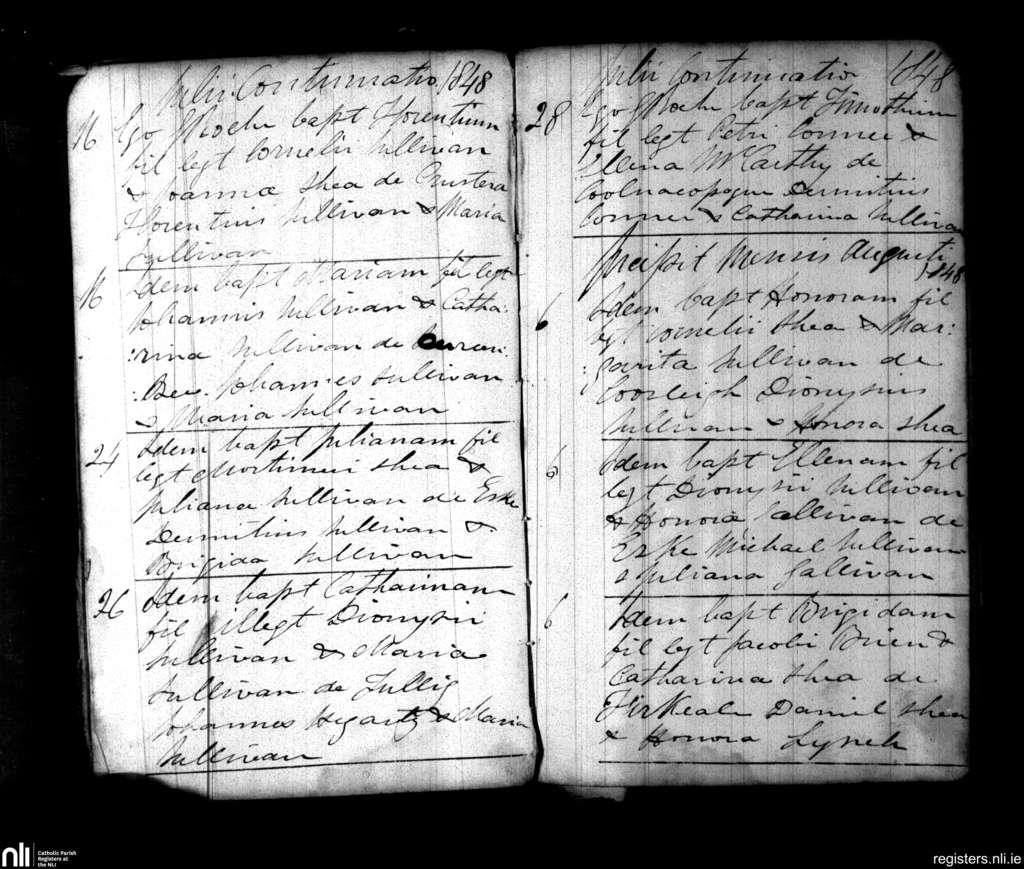 Julii Continuatio 1848
16 Ego Roche bapt Florentium
fil legt Cornelii Sullivan
& Joannæ Shea de
Florentius Sullivan & Maria
Sullivan
16 Idem bapt Mariam fil legt
Johannis Sullivan & Catha:
:rina Sullivan de
Johannes Sullivan
& Maria Sullivan
24 Idem bapt Julianam fil
legt Mortimer Shea &
Juliana Sullivan de Eske
Dermitius Sullivan &
Brigida Sullivan
26 Idem bapt Catharinam
fil illegt Dionysii
Sullivan & Maria
Sullivan de Tullig
Johannes Hegarty & Maria
Sullivan
Julii Continuatio 1848
28 Ego Roche bapt Timothium
fil legt Petri Connor &
Ellena McCarthy de
Coolnacopogue Dermitius
Connor & Catharina Sullivan
Incipit Mensis Augusti
1848
6 Idem bapt Honoram fil
legt Cornelii Shea & Mar:
:garita Sullivan de
Coosleigh Dionysius
Sullivan & Honora Shea
6 Idem bapt Ellenam fil
legt Dionysii Sullivan
& Honora Sullivan de
Eske Michael Sullivan
& Juliana Gallivan
6 Idem bapt Brigidam
fil legt Jacobi Brien &
Catharina Shea de
Firkeale Daniel Shea
& Honora Lynch
nli Catholic Parish
Registers at
the NLI
registers.nli.ie